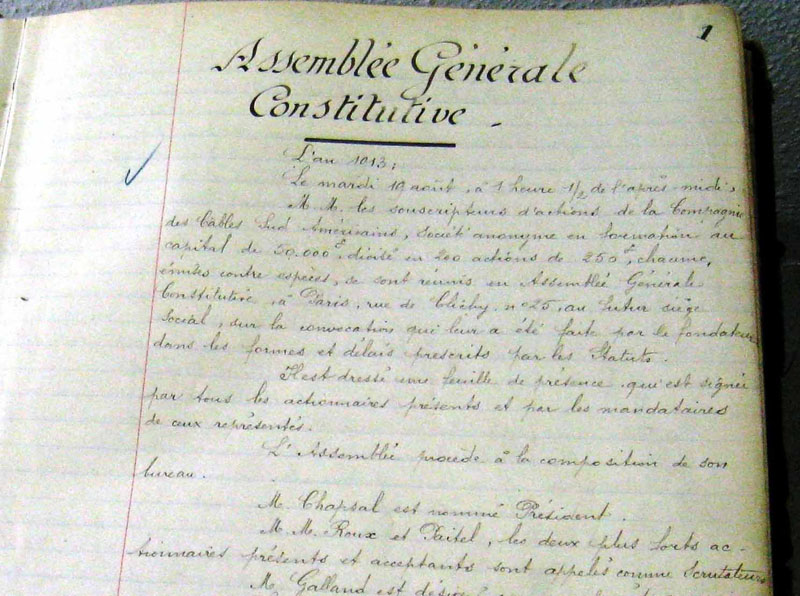 1
Assemblée Générale
Constitutive -
L'an 1913;
Le mardi 19 août, à 1 heure 1/2 de l'après-midi,
M. M. les souscripteurs d'actions de la Compagnie
des Câbles Sud Américains, société anonyme en formation au
capital de 50.000 f, divisé en 200 actions de 250 f, chacune,
émises contre espèces, se sont réunis en Assemblée Générale
Constitutive, à Paris, rue de Clichy, n° 25, au futur siège
Social, sur la convocation qui leur a été faite par le fondateur
dans les formes et délais prescrits par les Statuts.
Il est dressé une feuille de présence qui est signée
par tous les actionnaires présents et par les mandataires
de ceux représentés.
L'Assemblée procède à la composition de son
bureau.
M. Chapsal est nommé Président.
M. M. Roux et Paitel, les deux plus forts ac-
tionnaires présents et acceptants sont appelés comme Scrutateurs
M. Galland est